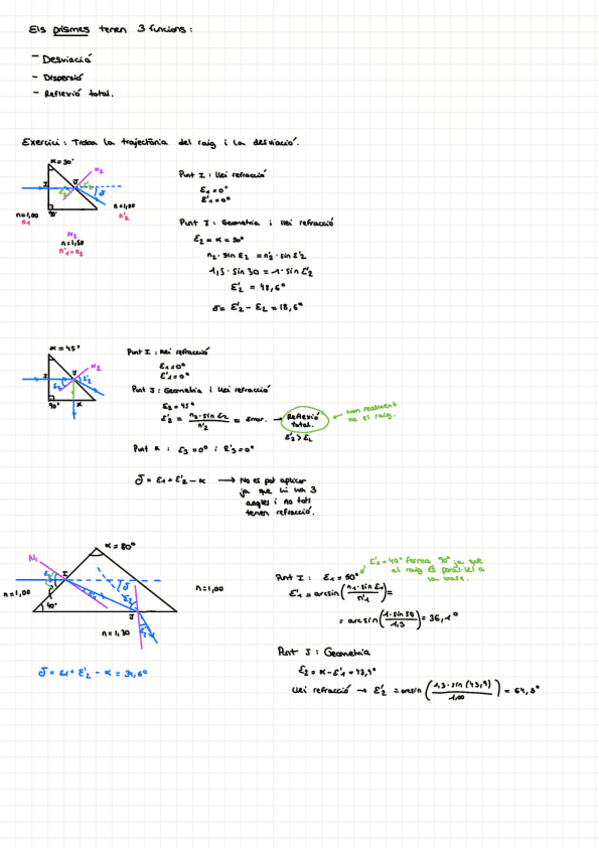 Els prismes tenen 3 funcions:
- Desviació
- Dispersió
- Reflexió total.
Exercici: Troba la trajectòria del raig i la desviació.
α = 30°
N2
I
J
ε2
ε'2
δ
n=1,00
n1
90°
n=1,00
n'2
N2
n=1,50
n'1=n2
Punt I: Llei refracció
ε1=0°
ε'1=0°
Punt J: Geometria i llei refracció
ε2 = α = 30°
n2 · sin ε2 = n'2 · sin ε'2
1,5 · sin 30 = 1 · sin ε'2
ε'2 = 48,6°
δ = ε'2 - ε2 = 18,6°
α = 45°
N2
I
J
ε2
ε'2
90°
K
Punt I: Llei refracció
ε1=0°
ε'1=0°
Punt J: Geometria i llei refracció
ε2 = 45°
ε'2 = n2·sin ε2 / n'2 = Error. → Reflexió total.
ε'2 > εL
← com realment va el raig.
Punt K: ε3=0° i ε'3=0°
δ = ε1 + ε'2 - α → No es pot aplicar
ja que hi ha 3
angles i no tots
tenen refracció.
α = 80°
N1
I
ε1
ε'1
δ
ε2
n=1,00
n=1,00
40°
J
ε'2
n=1,30
δ = ε1 + ε'2 - α = 34,6°
ε'1=40° forma 90° ja que
el raig és paral·lel a
la base.
Punt I: ε1 = 50°
ε'1 = arcsin (n1 · sin ε1 / n'1) =
= arcsin (1 · sin 50 / 1,3) = 36,1°
Punt J: Geometria
ε2 = α - ε'1 = 43,9°
Llei refracció → ε'2 = arcsin (1,3 · sin (43,9) / 1,00) = 64,3°